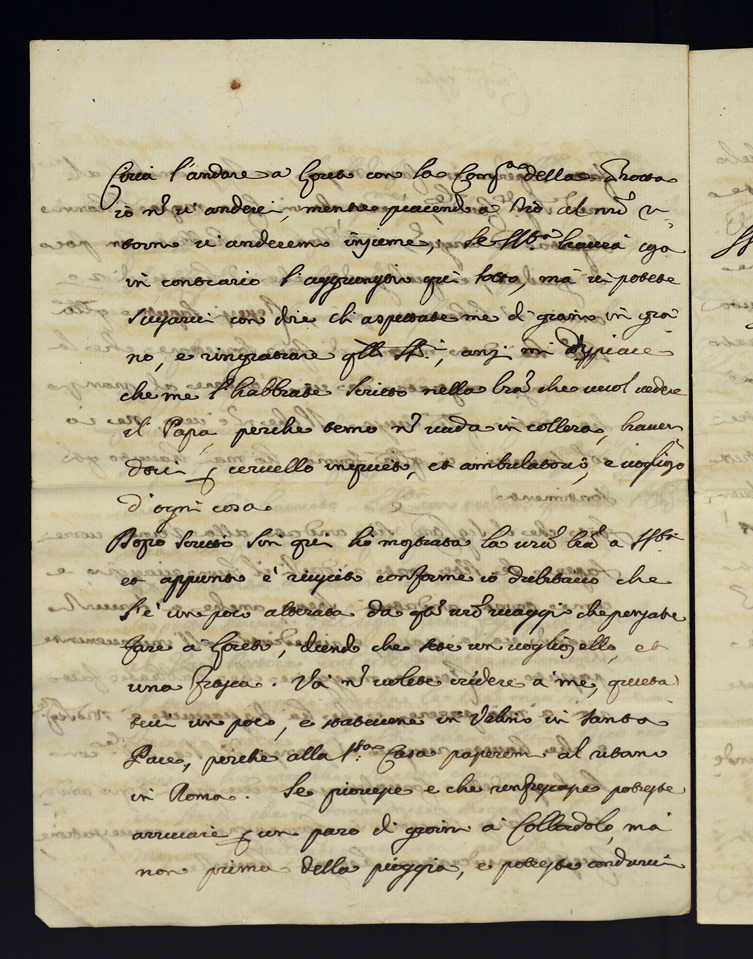 Circa l'andare a Loreto con la Comp.a della Grotta
io nō ci anderei, mentre piacendo a Dio al nrō ri-
torno ci anderemo insieme, se
in contrario l'aggiungerà qui sotto, mà vi potete
scusarvi con dire ch'aspettate me di giorno in gior-
no, e ringratiare anzi mi dispiace
che me l'habbiate scritto nella lrā che vuol vedere
il Papa, perche temo nō vada in collera, haven
dovi cervello inquieto, et ambulatorio, e voglioso
d'ogni cosa.
Dopo scritto sin qui hò mostrata la vrā lrā a
et appunto è riuscito conforme io dubitavo che
s'è un poco alterata da qti vrī viaggi che pensate
fare a Loreto, dicendo che sete un vogliosello, et
una frasca. Và nō volete credere a me, quieta
tevi un poco, e statevene in Urbino in santa
Pace, perche alla S.ta Casa passeremo al ritorno
in Roma. Se piovesse e che rinfrescasse potreste
arrivare un paro di giorni à Colbordolo, mà
non prima della pioggia, e potreste condurvi